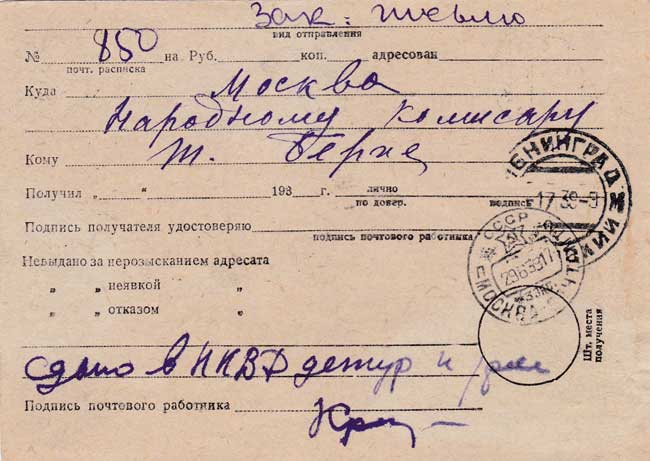 Зак. письмо
вид отправления
№ 850 на Руб. коп. адресован
почт. расписка
Куда Москва
Народному Комисару
Кому т. Берие
Получил „ “ 193 г. лично
по довер. подпись
Подпись получателя удостоверяю
подпись почтового работника
Невыдано за нерозысканием адресата
„ „ неявкой „
„ „ отказом „
Шт. места
получения
сдано в НКВД дежур
Подпись почтового работника
ЛЕНИНГРАД
СССР
29639 17
МОСКВА